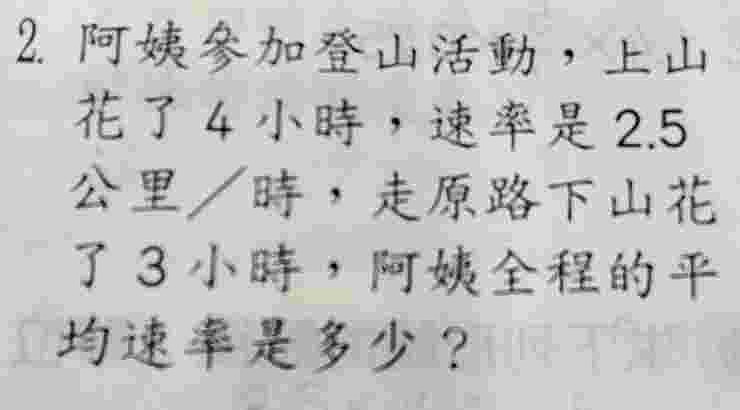 2. 阿姨參加登山活動，上山
花了 4 小時，速率是 2.5
公里／時，走原路下山花
了 3 小時，阿姨全程的平
均速率是多少？